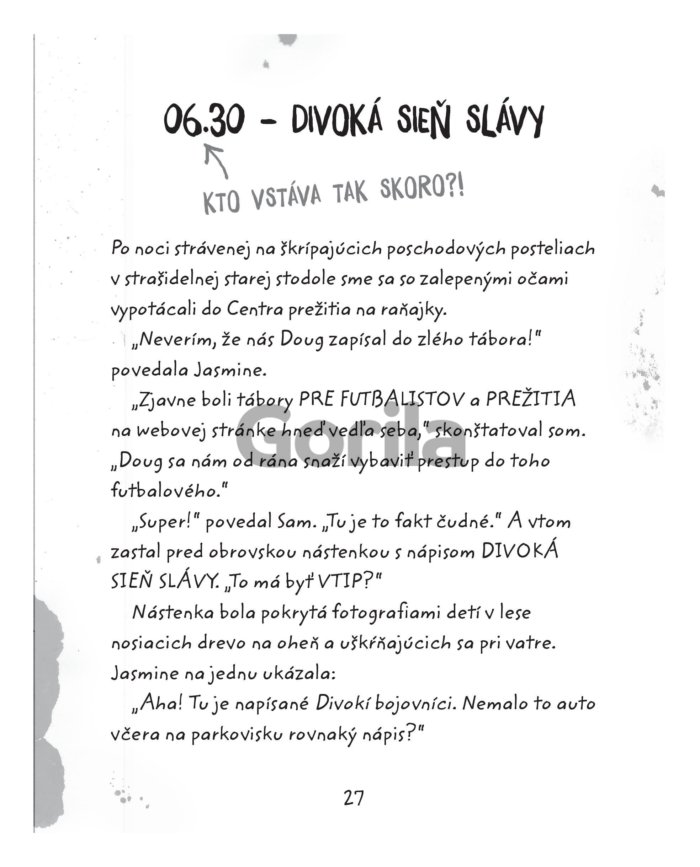 06.30 – DIVOKÁ SIEŇ SLÁVY
KTO VSTÁVA TAK SKORO?!
Po noci strávenej na škrípajúcich poschodových posteliach
v strašidelnej starej stodole sme sa so zalepenými očami
vypotácali do Centra prežitia na raňajky.
„Neverím, že nás Doug zapísal do zlého tábora!"
povedala Jasmine.
„Zjavne boli tábory PRE FUTBALISTOV a PREŽITIA
na webovej stránke hneď vedľa seba," skonštatoval som.
„Doug sa nám od rána snaží vybaviť prestup do toho
futbalového."
„Super!" povedal Sam. „Tu je to fakt čudné." A vtom
zastal pred obrovskou nástenkou s nápisom DIVOKÁ
SIEŇ SLÁVY. „To má byť VTIP?"
Nástenka bola pokrytá fotografiami detí v lese
nosiacich drevo na oheň a uškŕňajúcich sa pri vatre.
Jasmine na jednu ukázala:
„Aha! Tu je napísané Divokí bojovníci. Nemalo to auto
včera na parkovisku rovnaký nápis?"
27
Gorila